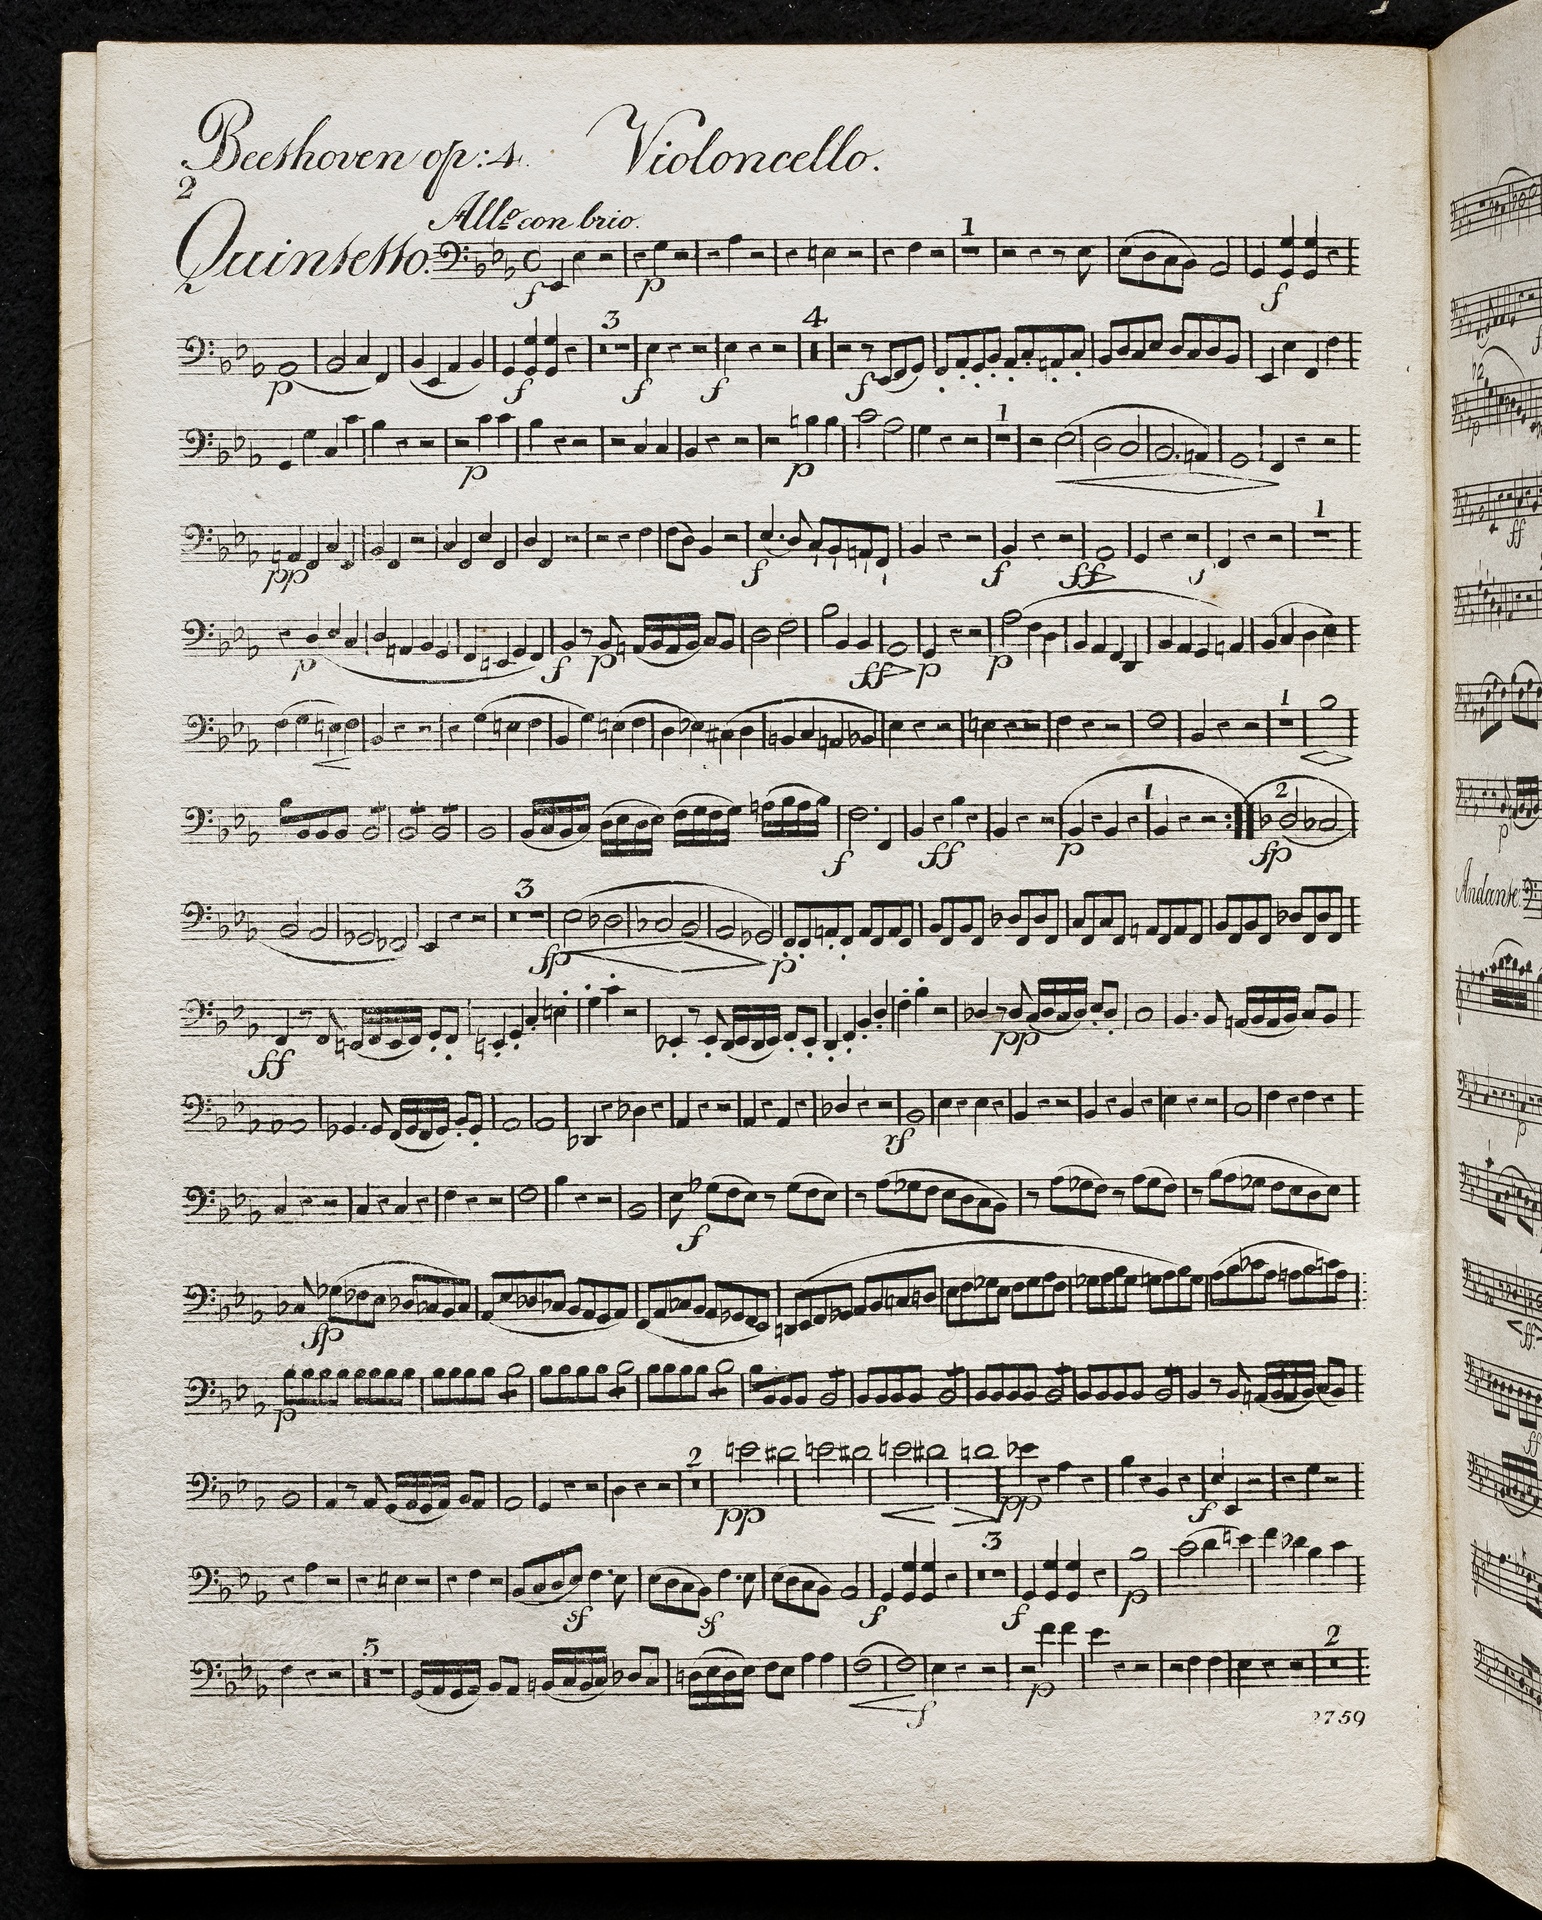 Beethoven op: 4. Violoncello.
2
Quintetto. Allo con brio.
f p 1 f
p f 3 f f 4 f
p p 1
pp f f ff f 1
p f p ff p p
1
f ff p 1 2 fp
3 fp p
ff pp
rf
f
fp
p
2 pp pp f
sf sf f 3 f p
5 f p 2
2759
Andante